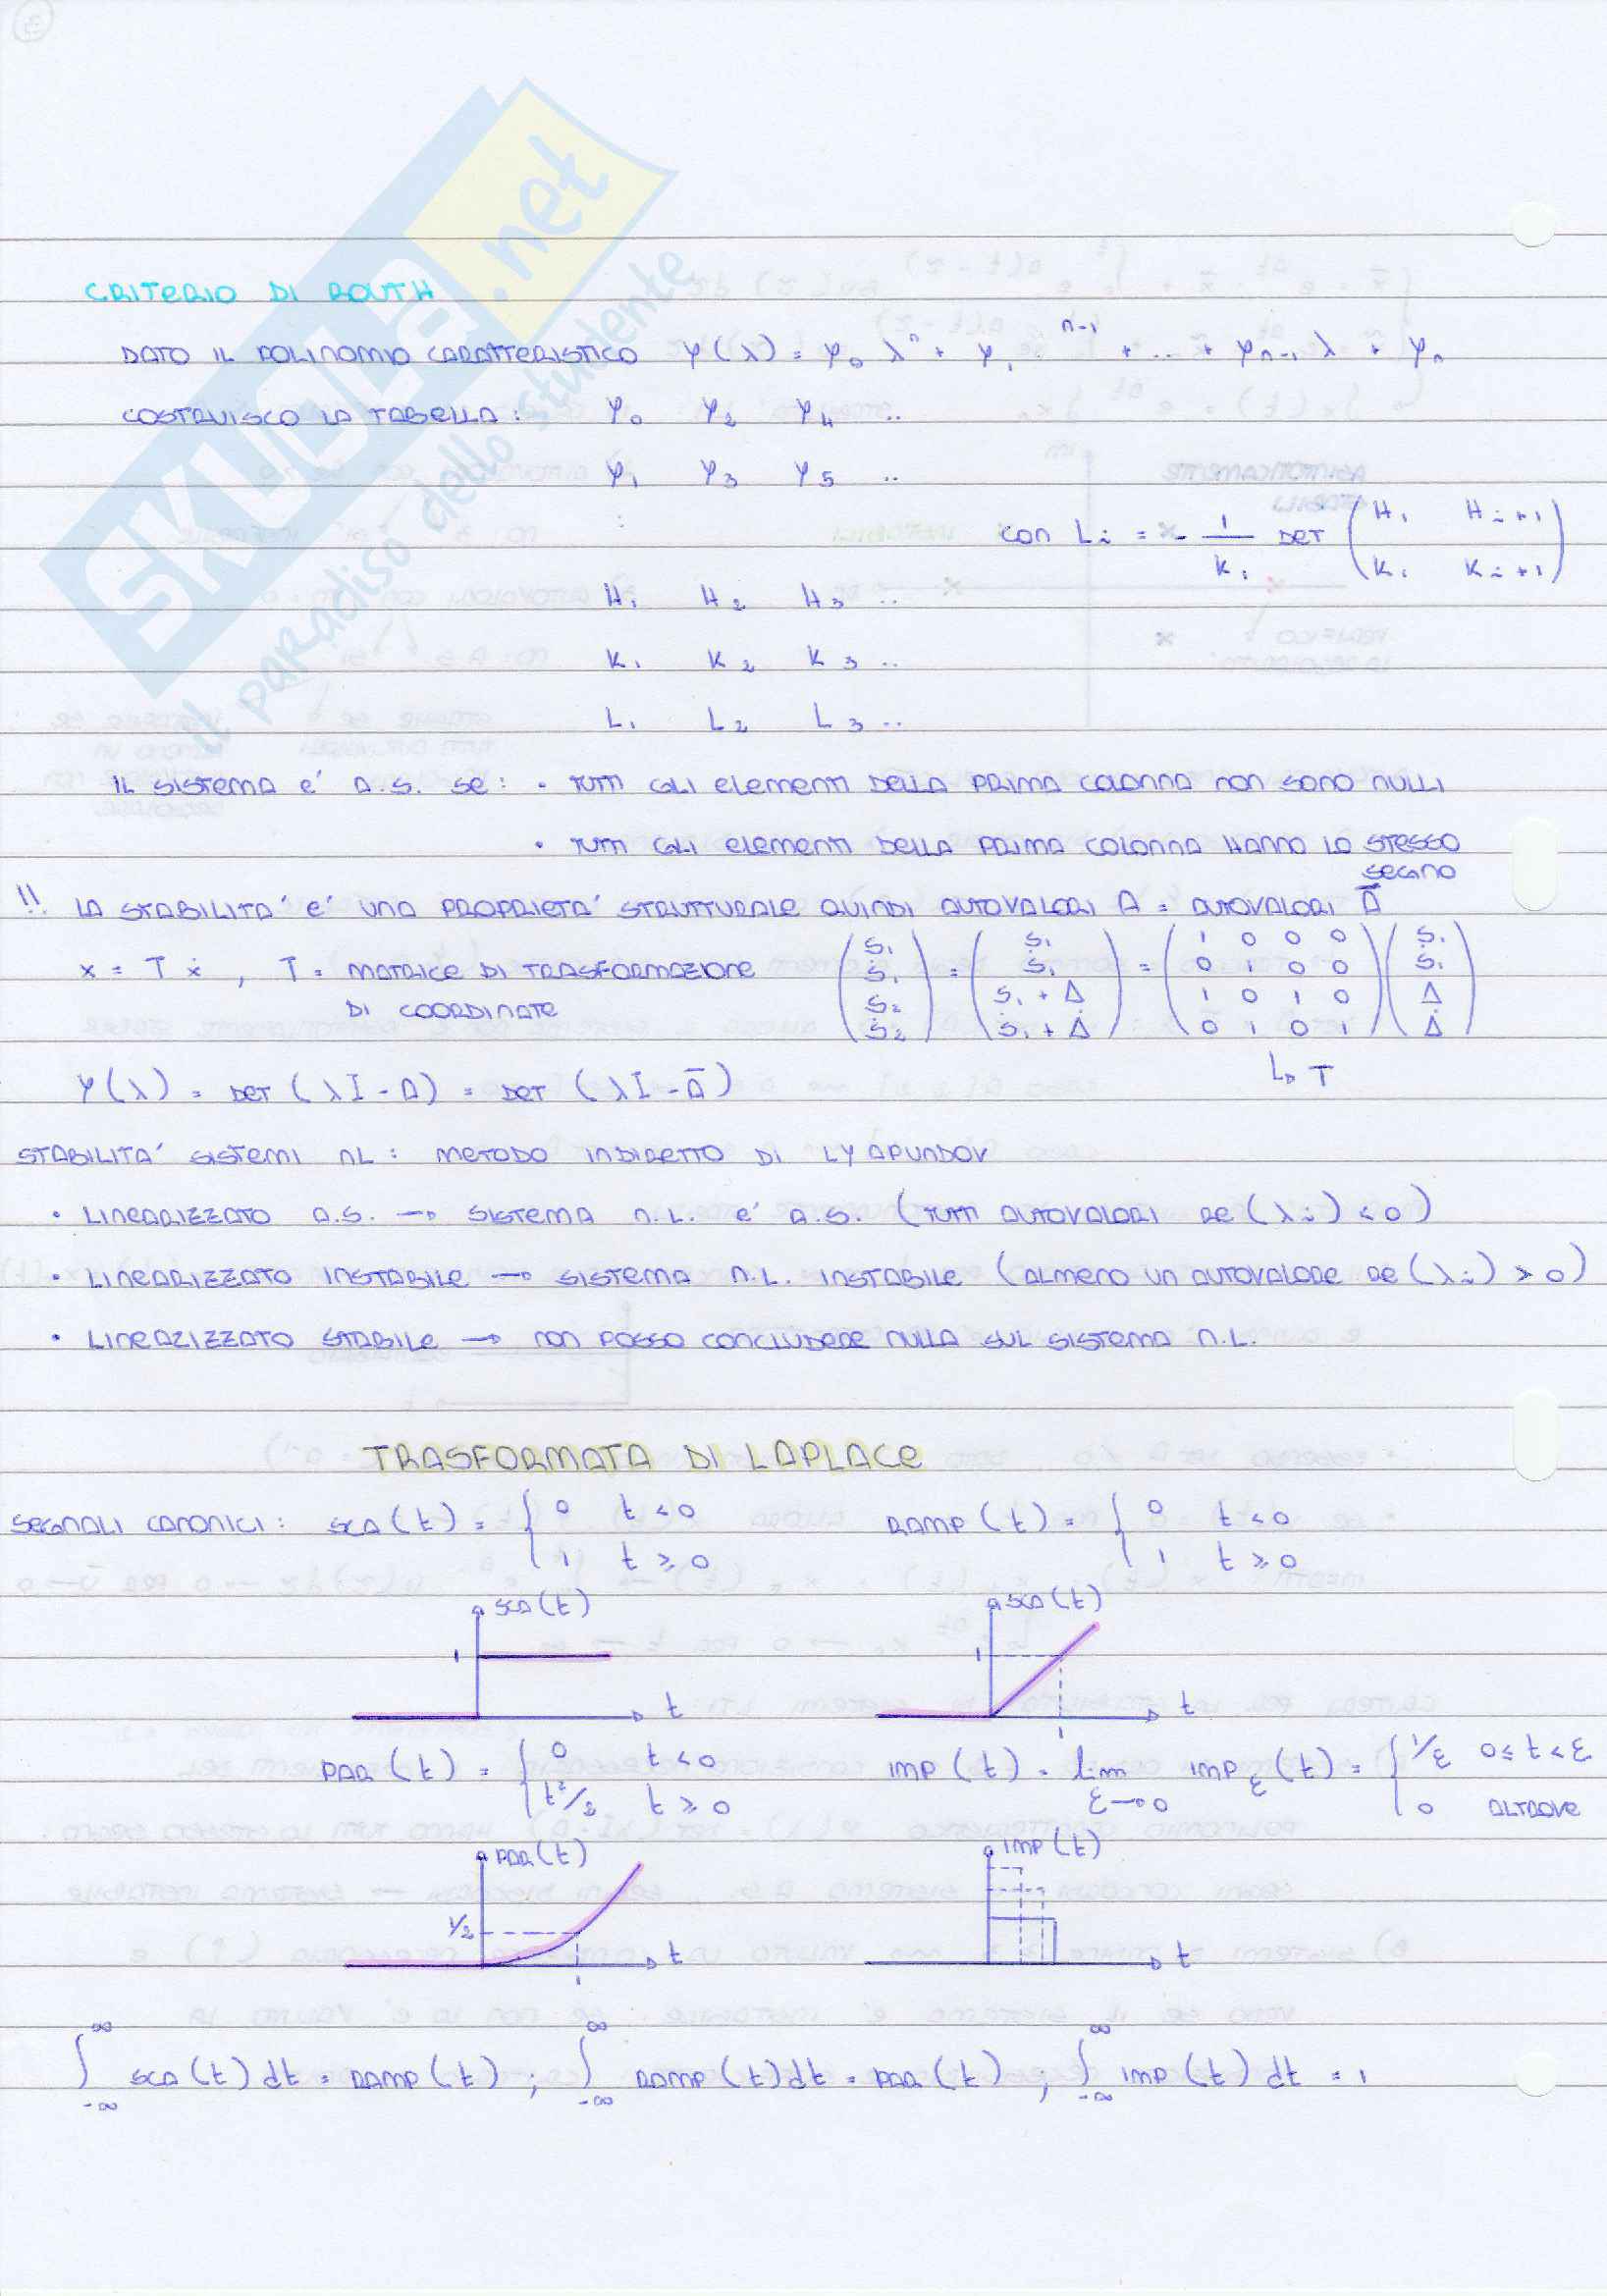 SKUOLA.net
il paradiso dello studente
CRITERIO DI ROUTH
DATO IL POLINOMIO CARATTERISTICO φ(λ) = φ₀ λⁿ + φ₁ · ⁿ⁻¹ + .. + φₙ₋₁ λ + φₙ
COSTRUISCO LA TABELLA: φ₀ φ₂ φ₄ ..
φ₁ φ₃ φ₅ ..
:
CON Lᵢ = - 1/K₁ DET (H₁ Hᵢ₊₁ / K₁ Kᵢ₊₁)
H₁ H₂ H₃ ..
K₁ K₂ K₃ ..
L₁ L₂ L₃ ..
IL SISTEMA E' A.S. SE: • TUTTI GLI ELEMENTI DELLA PRIMA COLONNA NON SONO NULLI
• TUTTI GLI ELEMENTI DELLA PRIMA COLONNA HANNO LO STESSO
SEGNO
!! LA STABILITA' E' UNA PROPRIETA' STRUTTURALE QUINDI AUTOVALORI A = AUTOVALORI A̅
x = T ẋ , T = MATRICE DI TRASFORMAZIONE
DI COORDINATE
(S₁ / Ṡ₁ / S₂ / Ṡ₂) = (S₁ / Ṡ₁ / S₁ + Δ / Ṡ₁ + Δ̇) = (1 0 0 0 / 0 1 0 0 / 1 0 1 0 / 0 1 0 1)(S₁ / Ṡ₁ / Δ / Δ̇)
↳ T
φ(λ) = DET (λI - A) = DET (λI - A̅)
STABILITA' SISTEMI NL: METODO INDIRETTO DI LYAPUNOV
• LINEARIZZATO A.S. → SISTEMA N.L. E' A.S. (TUTTI AUTOVALORI RE(λᵢ) < 0)
• LINEARIZZATO INSTABILE → SISTEMA N.L. INSTABILE (ALMENO UN AUTOVALORE RE(λᵢ) > 0)
• LINEAZIZZATO STABILE → NON POSSO CONCLUDERE NULLA SUL SISTEMA N.L.
TRASFORMATA DI LAPLACE
SEGNALI CANONICI: SCA(t) = { 0 t < 0 RAMP(t) = { 0 t < 0
1 t ≥ 0 1 t ≥ 0
SCA(t) SCA(t)
1 1
t t
1
PAR(t) = { 0 t < 0 IMP(t) = lim ε→0 IMPε(t) = { 1/ε 0 ≤ t < ε
t²/2 t ≥ 0 0 ALTROVE
PAR(t) IMP(t)
1/2
t t
1
∫₋∞^∞ SCA(t) dt = RAMP(t) ; ∫₋∞^∞ RAMP(t) dt = PAR(t) ; ∫₋∞^∞ IMP(t) dt = 1